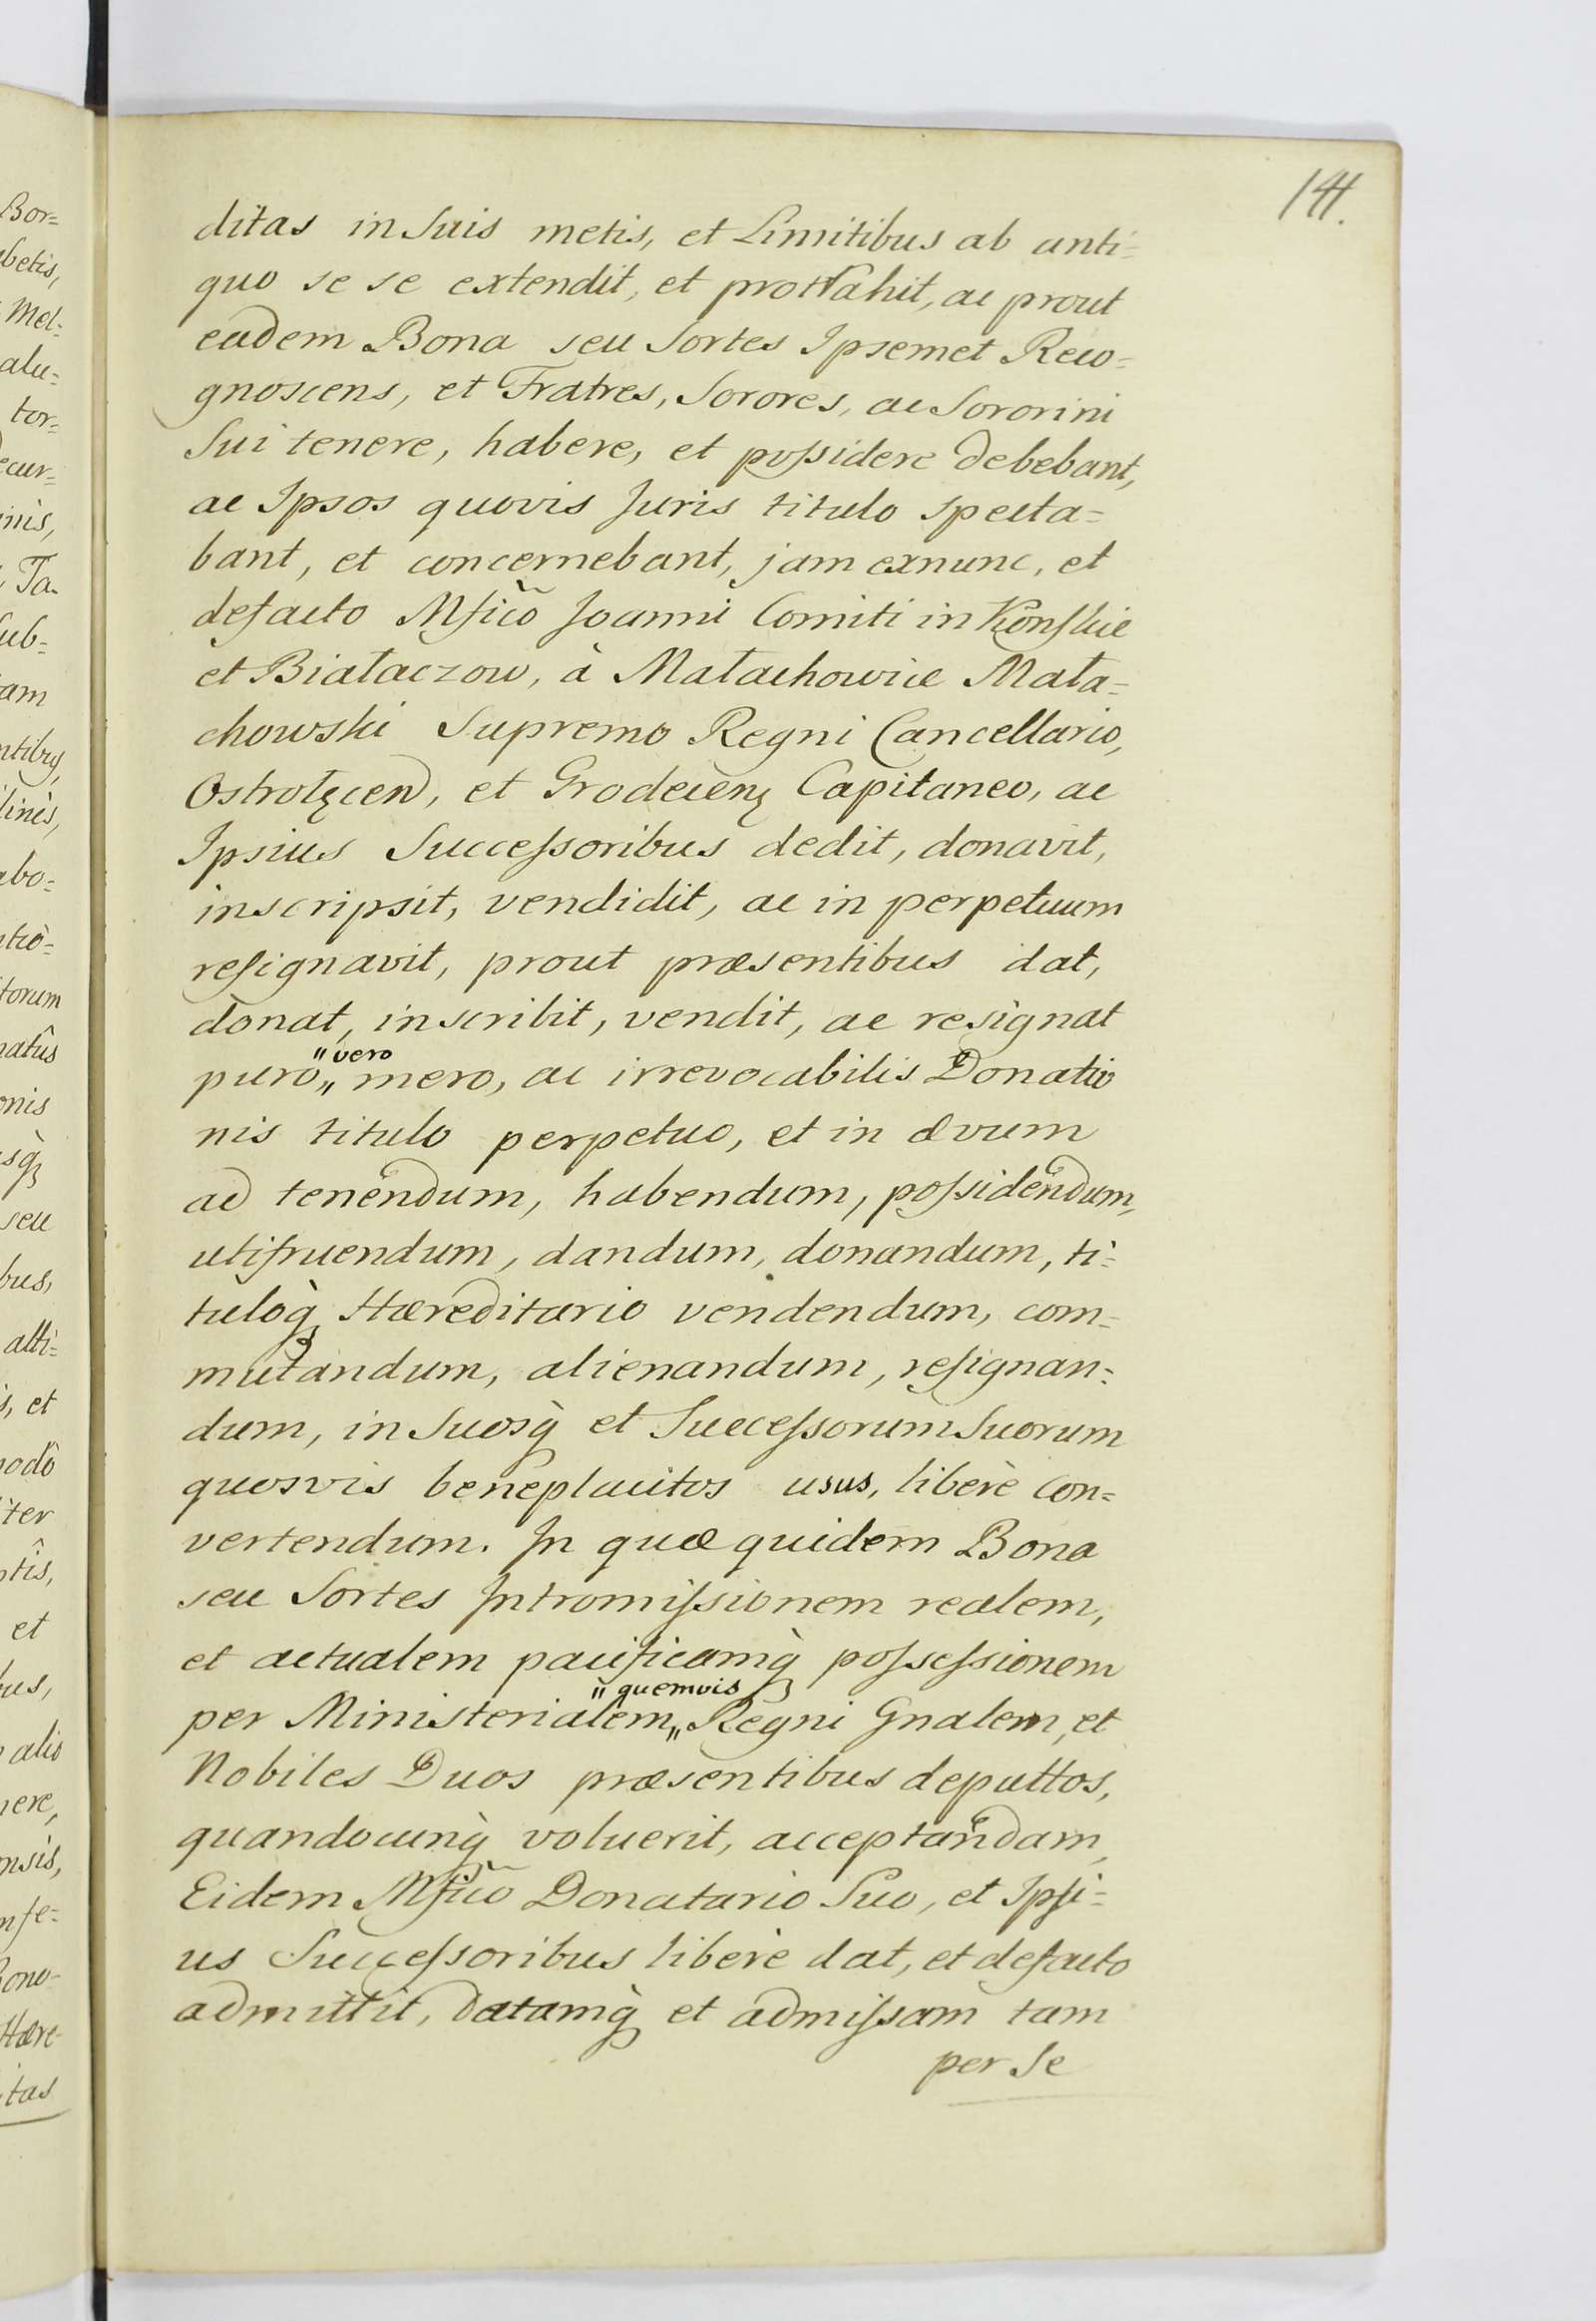 144.
ditas in Suis metis, et Limitibus ab anti=
quo se se extendit, et prottrahit, ac prout
eadem Bona seu Sortes Ipsemet Reco=
gnoscens, et Fratres, Sorores, ac Sororini
Sui tenere, habere, et poſsidere debebant,
ac Ipsos quovis Juris titulo specta=
bant, et concernebant, jam exnunc, et
defacto Mfico Joanni Comiti in Konſkie
et Białaczow, à Małachowice Mała=
chowski Supremo Regni Cancellario,
Ostrołęcen, et Grodecenꝫ Capitaneo, ac
Ipsius Succeſsoribus dedit, donavit,
inscripsit, vendidit, ac in perpetuum
reſignavit, prout præsentibus dat,
donat, inscribit, vendit, ac resignat
"vero
puro" mero, ac irrevocabilis Donatio
nis titulo perpetuo, et in ævum
ad tenendum, habendum, poſsidendum,
utifruendum, dandum, donandum, ti=
tuloq̀ Hæreditario vendendum, com=
mutandum, alienandum, reſignan=
dum, in Suosq̀ et Succeſsorum Suorum
quosvis beneplacitos usus, liberè con=
vertendum. In quæ quidem Bona
seu Sortes Intromiſsionem realem,
et actualem pacificamq̀ poſseſsionem
"quemvis
per Ministerialem" Regni Gnalem, et
Nobiles Duos præsentibus deputtos,
quandocunq̀ voluerit, acceptandam,
Eidem Mfico Donatario Suo, et Ipſi=
us Succeſsoribus liberè dat, et defacto
admittit, datamq̀ et admiſsam tam
per Se
Bor=
betis,
Mel=
alu=
tor=
ecur=
inis,
Ta-
Sub=
tam
ntibꝰ,
linès,
abo=
ntiò=
torum
natûs
onis
sq̀
seu
bus,
atti=
s, et
modô
ter
ptîs,
et
bus,
alio
nere,
nsis,
nſe=
Bono-
Hære-
itas